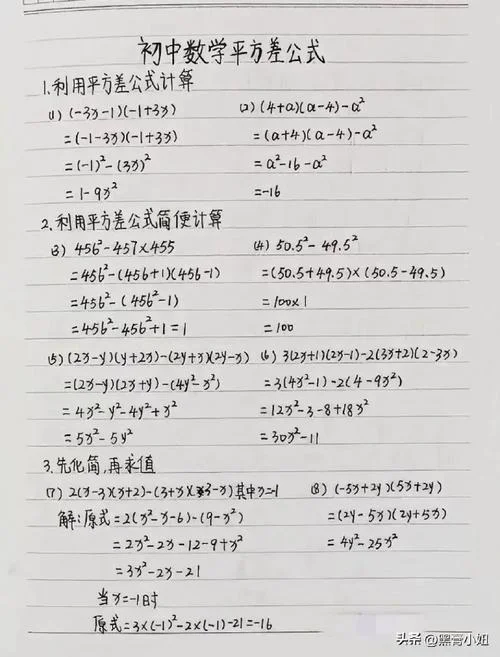 初中数学平方差公式
1.利用平方差公式计算
(1) (-3x-1)(-1+3x)
=(-1-3x)(-1+3x)
=(-1)²-(3x)²
=1-9x²
(2) (4+a)(a-4)-a²
=(a+4)(a-4)-a²
=a²-16-a²
=-16
2.利用平方差公式简便计算
(3) 456²-457×455
=456²-(456+1)(456-1)
=456²-(456²-1)
=456²-456²+1=1
(4) 50.5²-49.5²
=(50.5+49.5)×(50.5-49.5)
=100×1
=100
(5) (2x-y)(y+2x)-(2y+x)(2y-x)
=(2x-y)(2x+y)-(4y²-x²)
=4x²-y²-4y²+x²
=5x²-5y²
(6) 3(2x+1)(2x-1)-2(3x+2)(2-3x)
=3(4x²-1)-2(4-9x²)
=12x²-3-8+18x²
=30x²-11
3.先化简,再求值
(7) 2(x-3)(x+2)-(3+x)(3-x)其中x=-1
解:原式=2(x²-x-6)-(9-x²)
=2x²-2x-12-9+x²
=3x²-2x-21
当x=-1时
原式=3×(-1)²-2×(-1)-21=-16
(8) (-5x+2y)(5x+2y)
=(2y-5x)(2y+5x)
=4y²-25x²
头条@黑膏小妞